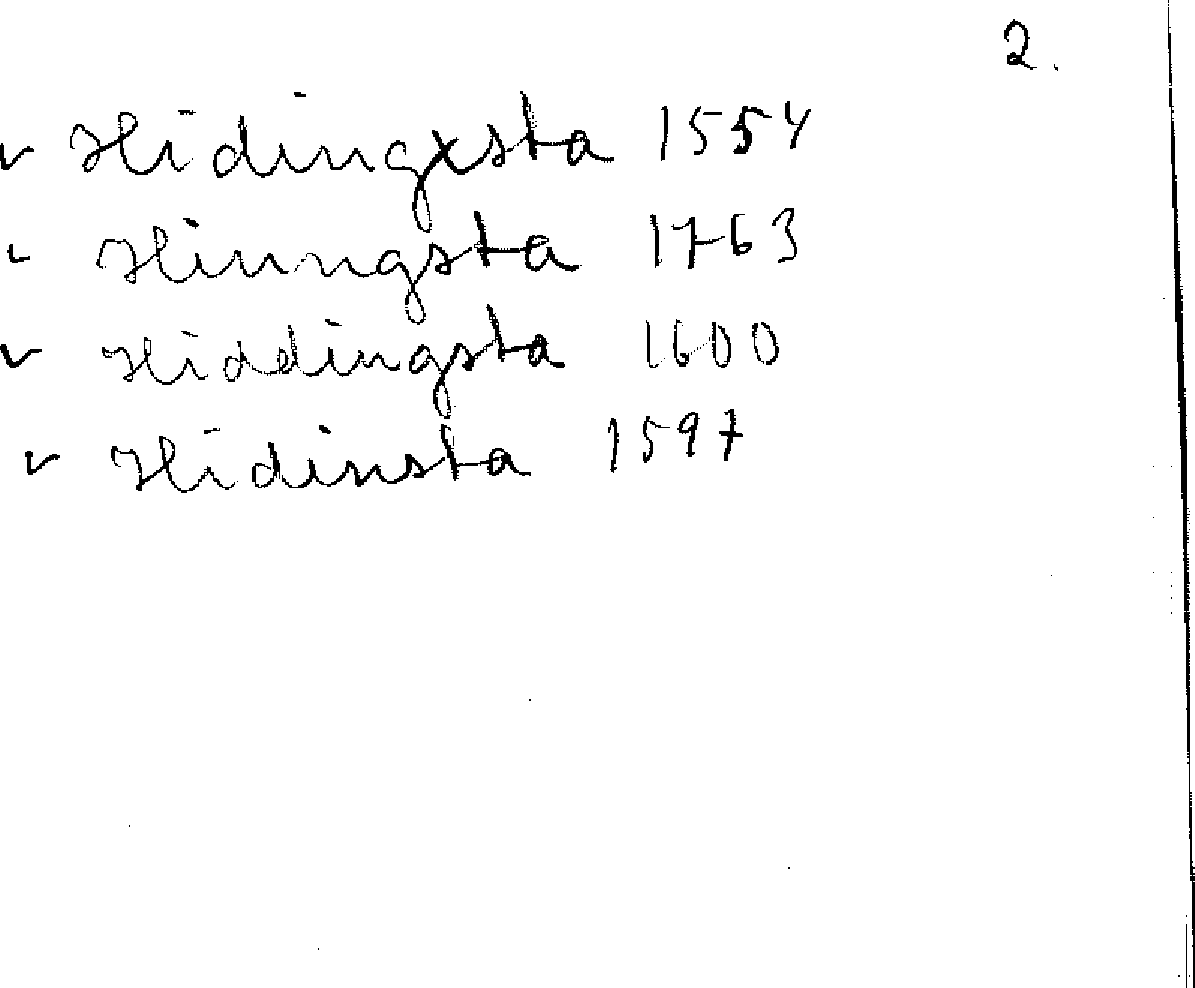 2.
v Hidingxsta 1554
v Hinningsta 1763
v Hiddingsta 1600
v Hidinsta 1597